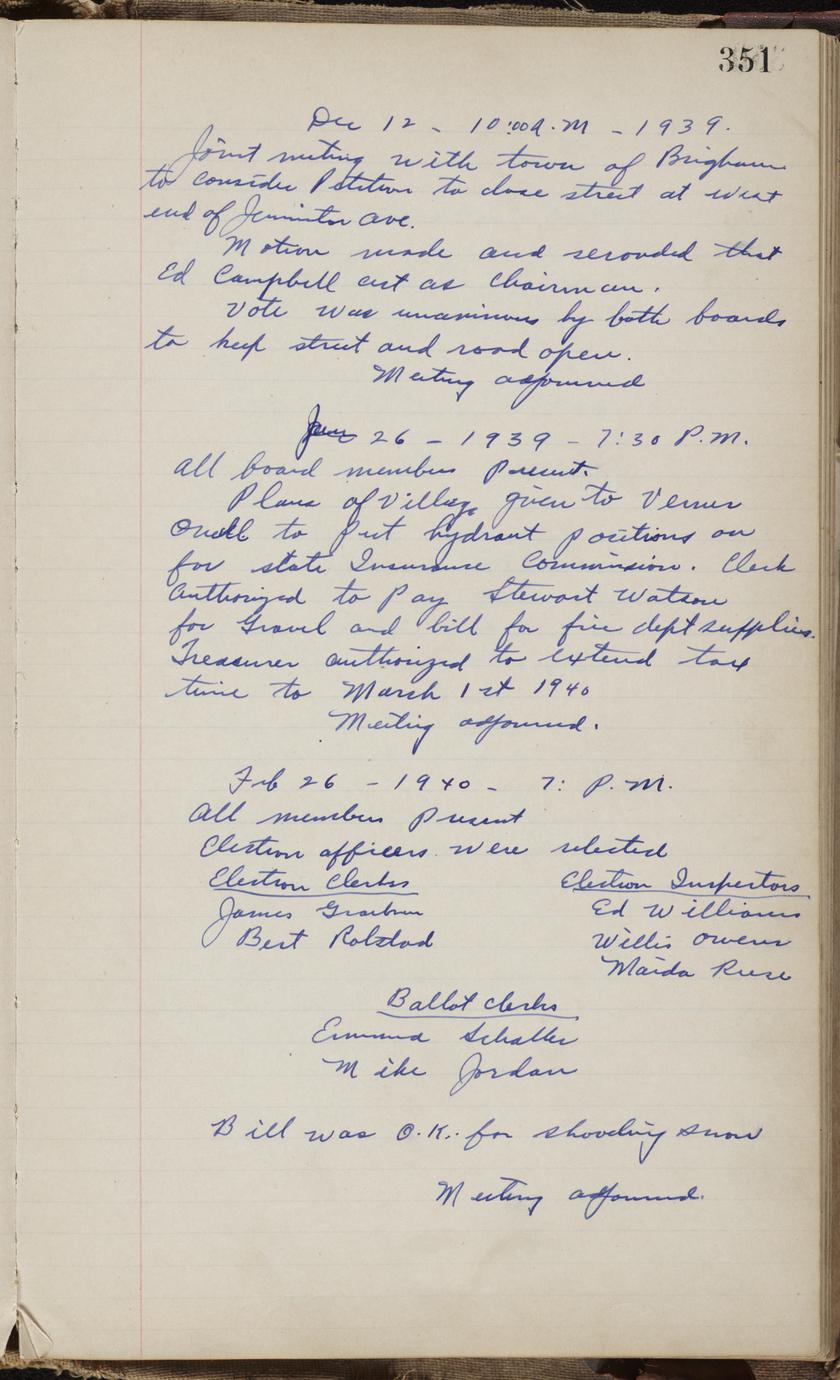 351
Dec 12 - 10:00 A.M - 1939.
Joint meeting with town of Brigham
to consider Petition to close street at west
end of Ave.
Motion made and seconded that
Ed Campbell act as Chairman.
Vote was unanimous by both boards
to keep street and road open.
Meeting adjourned
Jan 26 - 1939 - 7:30 P.M.
All board members Present.
Plans of Village given to Verner
to Put hydrant positions on
for state Insurance Commission. Clerk
Authorized to Pay Stewart Watson
for Gravel and bill for fire dept supplies.
Treasurer authorized to extend tax
time to March 1st 1940
Meeting adjourned.
Feb 26 - 1940 - 7: P.M.
All members Present
Election officers were selected
Election Clerks Election Inspectors
James Ed Williams
Bert Rolstad Willis Owens
Maida
Ballot clerks
Schaller
Mike Jordan
Bill was O.K. for shoveling snow
Meeting adjourned.